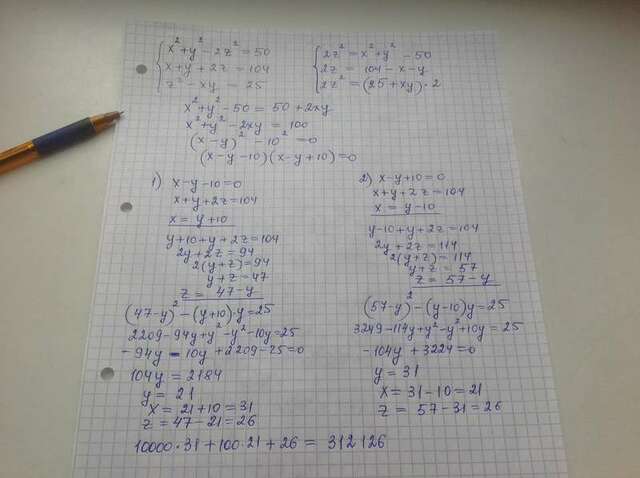 x² + y² - 2z² = 50
x + y + 2z = 104
z² - xy = 25
2z² = x² + y² - 50
2z = 104 - x - y
2z² = (25 + xy) · 2
x² + y² - 50 = 50 + 2xy
x² + y² - 2xy = 100
(x - y)² - 10² = 0
(x - y - 10)(x - y + 10) = 0
1) x - y - 10 = 0
x + y + 2z = 104
x = y + 10
y + 10 + y + 2z = 104
2y + 2z = 94
2(y + z) = 94
y + z = 47
z = 47 - y
(47 - y)² - (y + 10) · y = 25
2209 - 94y + y² - y² - 10y = 25
- 94y - 10y + 2209 - 25 = 0
104y = 2184
y = 21
x = 21 + 10 = 31
z = 47 - 21 = 26
2) x - y + 10 = 0
x + y + 2z = 104
x = y - 10
y - 10 + y + 2z = 104
2y + 2z = 114
2(y + z) = 114
y + z = 57
z = 57 - y
(57 - y)² - (y - 10)y = 25
3249 - 114y + y² - y² + 10y = 25
- 104y + 3224 = 0
y = 31
x = 31 - 10 = 21
z = 57 - 31 = 26
10000 · 31 + 100 · 21 + 26 = 312126